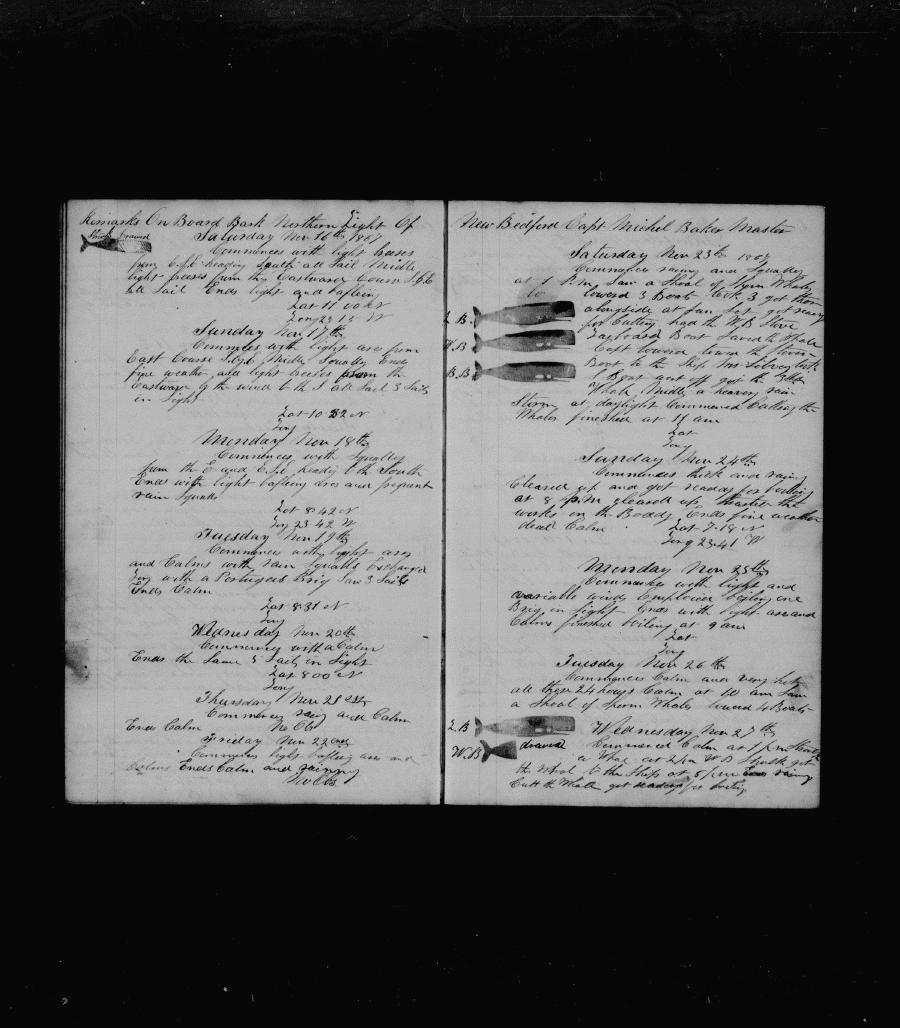 Remarks On Board Bark Northern Light Of
drawed
Saturday Nov 16th 1867
Commences with light breses
from heading South all Sail Middle
light breses from the Eastward Course
all Sail Ends light and bafling
Lat 11 00 N
Long 23 15 W
Sunday Nov 17th
Commences with light ares from
East Course Middle Squally Ends
fine weather and light breeses from the
Eastward by the wind to the S all Sail 3 Sails
in Sight
Lat 10 32 N
Long
Monday Nov 18th
Commences with Squally
from the E and heading to the South
Ends with light bafling ares and frequent
rain Squals
Lat 8 42 N
Long 23 42 W
Tuesday Nov 19th
Commences with light ares
and Calms with rain Squalls Exchanged
with a Portugees Brig Saw 3 Sails
Ends Calm
Lat 8 31 N
Long
Wednesday Nov 20th
Commences with a Calm
Ends the Same 5 Sails in Sight
Lat 8 00 N
Long
Thursday Nov 21
Commences rany and Calm
Ends Calm No Obs
Friday Nov 22
Commences light bafling ares and
Calms Ends Calm and rainny
No Obs
New Bedford Capt Michel Baker Master
Saturday Nov 23th 1867
Commences rainy and Squally
at 1 P.m Saw a Shoal of Sperm Whales
lowerd 3 Boats took 3 got them
alongside at got ready
for Cutting had the W.B Stove
L.B.
W.B
B.B
Larboard Boat Saved the Whale
Capt lowerd the Stoven
Boat to the Ship
Boat got the
Whale Middle a heavey rain
Storm at daylight Commenced Cutting the
Whales finished at 11 am
Lat
Long
Sunday Nov 24th
Commences thick and rainy
Cleared up and got readdy for boiling
at 8 P.M cleared up Started the
works on the Boddy Ends fine weather
dead Calm Lat 7-18 N
Long 23-41 W
Monday Nov 25th
Commences with light and
variable winds Employed boiling one
Brig in Sight Ends with light ares and
Calms finished boiling at 9 am
Lat
Long
Tuesday Nov 26th
Commences Calm and very hot
all these 24 hours Calm at 10 am Saw
a Shoal of Sperm Whales lowerd 4 Boats
L.B
W.B drawed
Wednesday Nov 27th
Commenced Calm at 1 P.m Struck
a Whale at 2 P.m W B Struck got
the Whale to the Ship at 5 P.m rainy
Cutt the Whale got readdy for boiling